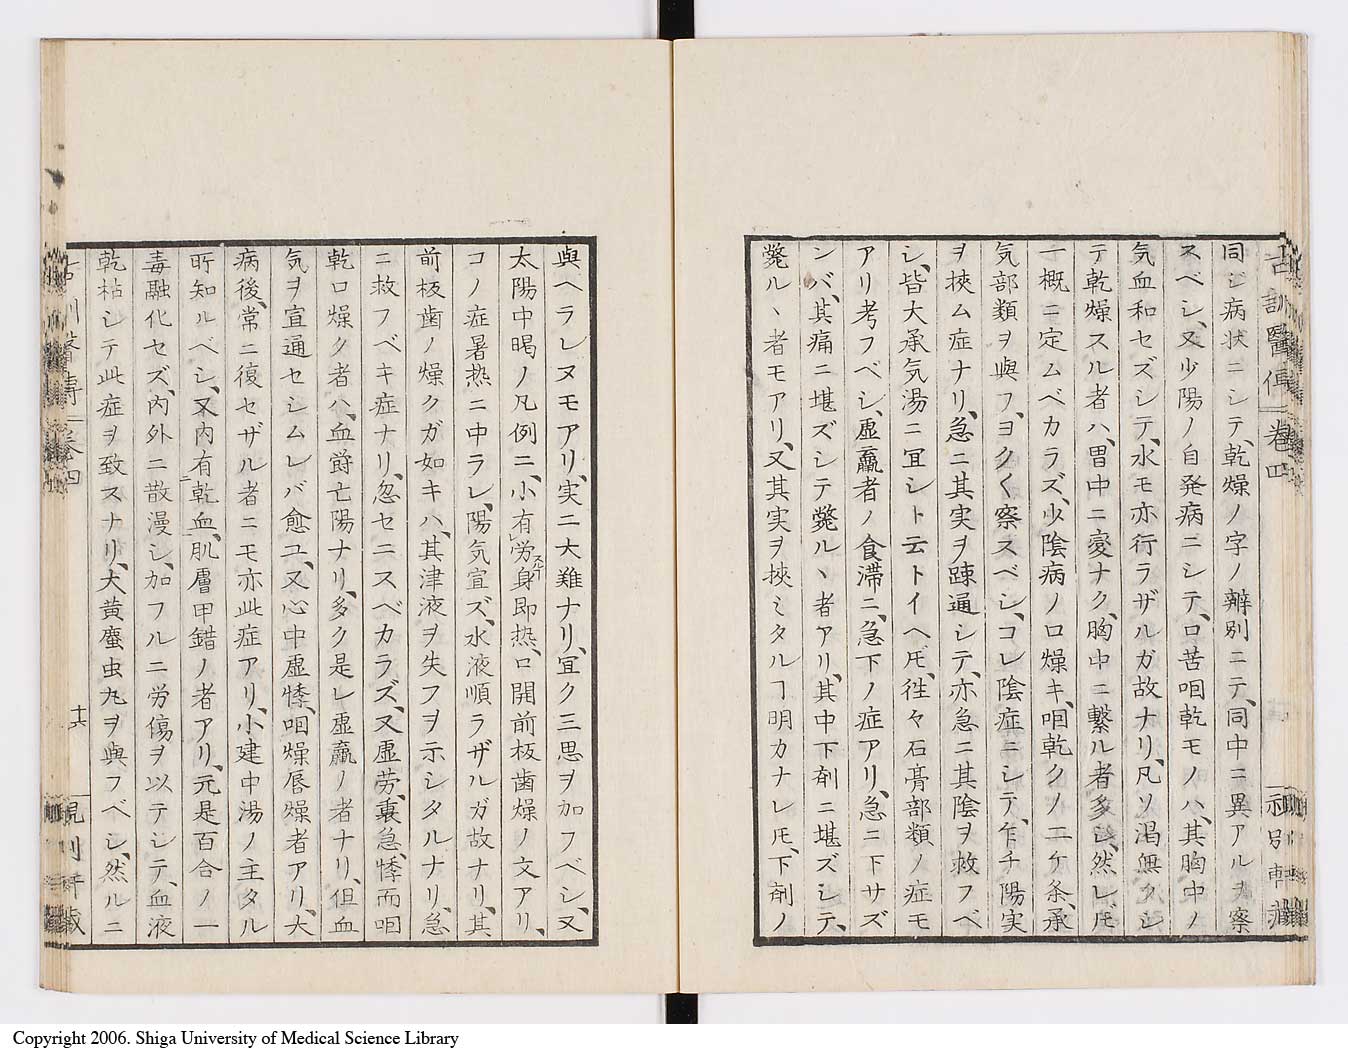 古訓醫傳 卷四
同シ病状ニシテ、乾燥ノ字ノ辨別ニテ、同中ニ異アルヲ察
スベシ、又少陽ノ自発病ニシテ、口苦咽乾モノハ、其胸中ノ
気血和セズシテ、水モ亦行ラザルガ故ナリ、凡ソ渇無クシ
テ乾燥スル者ハ、胃中ニ変ナク、胸中ニ繋ル者多シ、然レ𪜈
一概ニ定ムベカラズ、少陰病ノ口燥キ、咽乾クノ二ケ条、承
気部類ヲ與フ、ヨク〱察スベシ、コレ陰症ニシテ、乍チ陽実
ヲ挾ム症ナリ、急ニ其実ヲ疎通シテ、亦急ニ其陰ヲ救フベ
シ、皆大承気湯ニ冝シト云トイヘ𪜈、徃々石膏部類ノ症モ
アリ考フベシ、虚羸者ノ食滞ニ、急下ノ症アリ、急ニ下サズ
ンバ、其痛ニ堪ズシテ斃ルヽ者アリ、其中下剤ニ堪ズシテ、
斃ルヽ者モアリ、又其実ヲ挾ミタルヿ明カナレ𪜈、下剤ノ
與ヘラレヌモアリ、実ニ大難ナリ、冝ク三思ヲ加フベシ、又
太陽中暍ノ凡例ニ、小有労身即热、口開前板歯燥ノ文アリ、
コノ症暑热ニ中ラレ、陽気宣ズ、水液順ラザルガ故ナリ、其
前板歯ノ燥クガ如キハ、其津液ヲ失フヲ示シタルナリ、急
ニ救フベキ症ナリ、忽セニスベカラズ、又虚労、裏急、悸、而咽
乾口燥ク者ハ、血欝亡陽ナリ、多クハ是レ虚羸ノ者ナリ、但血
気ヲ宣通セシムレバ愈ユ、又心中虚悸、咽燥唇燥者アリ、大
病後、常ニ復セザル者ニモ亦此症アリ、小建中湯ノ主タル
所知ルベシ、又内有乾血、肌膚甲錯ノ者アリ、元是百合ノ一
毒融化セズ、内外ニ散漫シ、加フルニ労傷ヲ以テシテ、血液
乾枯シテ此症ヲ致スナリ、大黄䗪虫丸ヲ與フベシ、然ルニ
古訓醫傳 卷四
十六
Copyright 2006. Shiga University of Medical Science Library